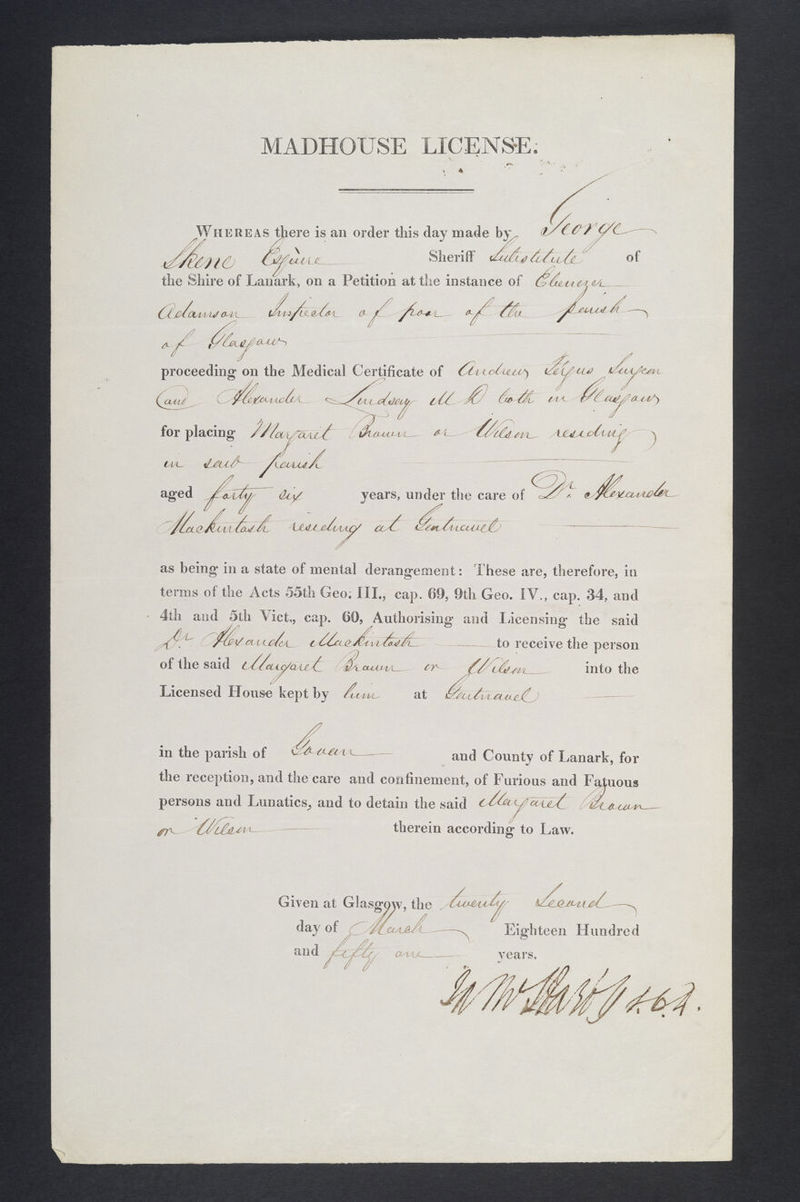 MADHOUSE LICENSE.
WHEREAS there is an order this day made by George
Skene Esquire Sheriff Substitute of
the Shire of Lanark, on a Petition at the instance of Ebenezer
Adamson Inspector of poor of the parish
of Glasgow
proceeding on the Medical Certificate of Andrew Fergus Surgeon
and Alexander Lindsay M D both in Glasgow
for placing Margaret Brown or Wilson residing
in said parish
aged forty six years, under the care of Dr. Alexander
Mackintosh residing at Gartnavel
as being in a state of mental derangement: These are, therefore, in
terms of the Acts 55th Geo. III., cap. 69, 9th Geo. IV., cap. 34, and
4th and 5th Vict., cap. 60, Authorising and Licensing the said
Dr Alexander Mackintosh to receive the person
of the said Margaret Brown or Wilson into the
Licensed House kept by him at Gartnavel
in the parish of Govan and County of Lanark, for
the reception, and the care and confinement, of Furious and Fatuous
persons and Lunatics, and to detain the said Margaret Brown
or Wilson therein according to Law.
Given at Glasgow, the twenty Second
day of March Eighteen Hundred
and fifty one years.